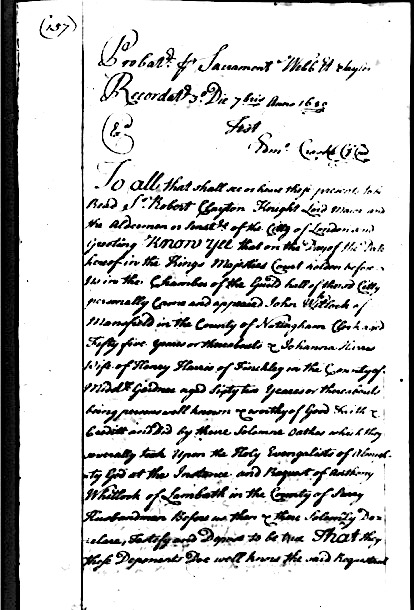 (157)
Probat. p Sacrament
Recordat 3o Die 7bris Anno 1680
Test
Edm.
To all that shall see or heare these presents
Read Sr. Robert Clayton Knight Lord Mayor and
the Aldermen or Senate of the Citty of London
Greeting Know Yee that on the Day of the Date
hereof in the Kings Majesties Court holden before
Us in the Chamber of the Guild hall of the said Citty
personally Came and appeared John Whitlock of
Mansfield in the County of Notingham Clerk aged
Fifty five Yeares or thereabouts & Johanna
Wife of Henry Harris of Finchley in the County of
Middx Gardner aged Sixty two Yeares or thereabouts
being persons well known & worthy of Good Faith &
Creditt and Did by theire Solemne Oathes which they
severally took Upon the Holy Evangelists of Almigh
ty God at the Instance and Request of Anthony
Whitlock of Lambeth in the County of Surry
Husbandman Before us then & there Solemnly De
clare, Testify and Depose to be true That they
these Deponents Doe well know the said Requestant